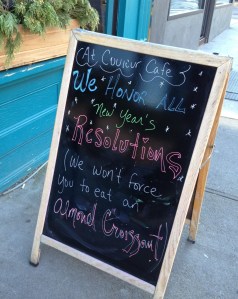 At Couleur Cafe
We Honor All
New Year's
Resolutions
(We won't force
you to eat an
Almond Croissant